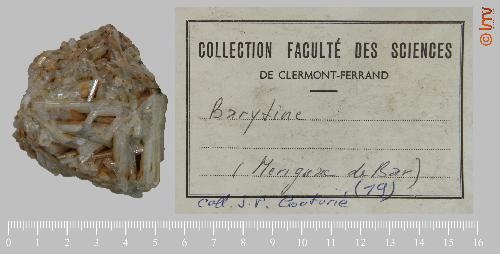 COLLECTION FACULTÉ DES SCIENCES
DE CLERMONT-FERRAND
Barytine
(19)
Coll. J.P. Couturié
0 1 2 3 4 5 6 7 8 9 10 11 12 13 14 15 16
© lmv